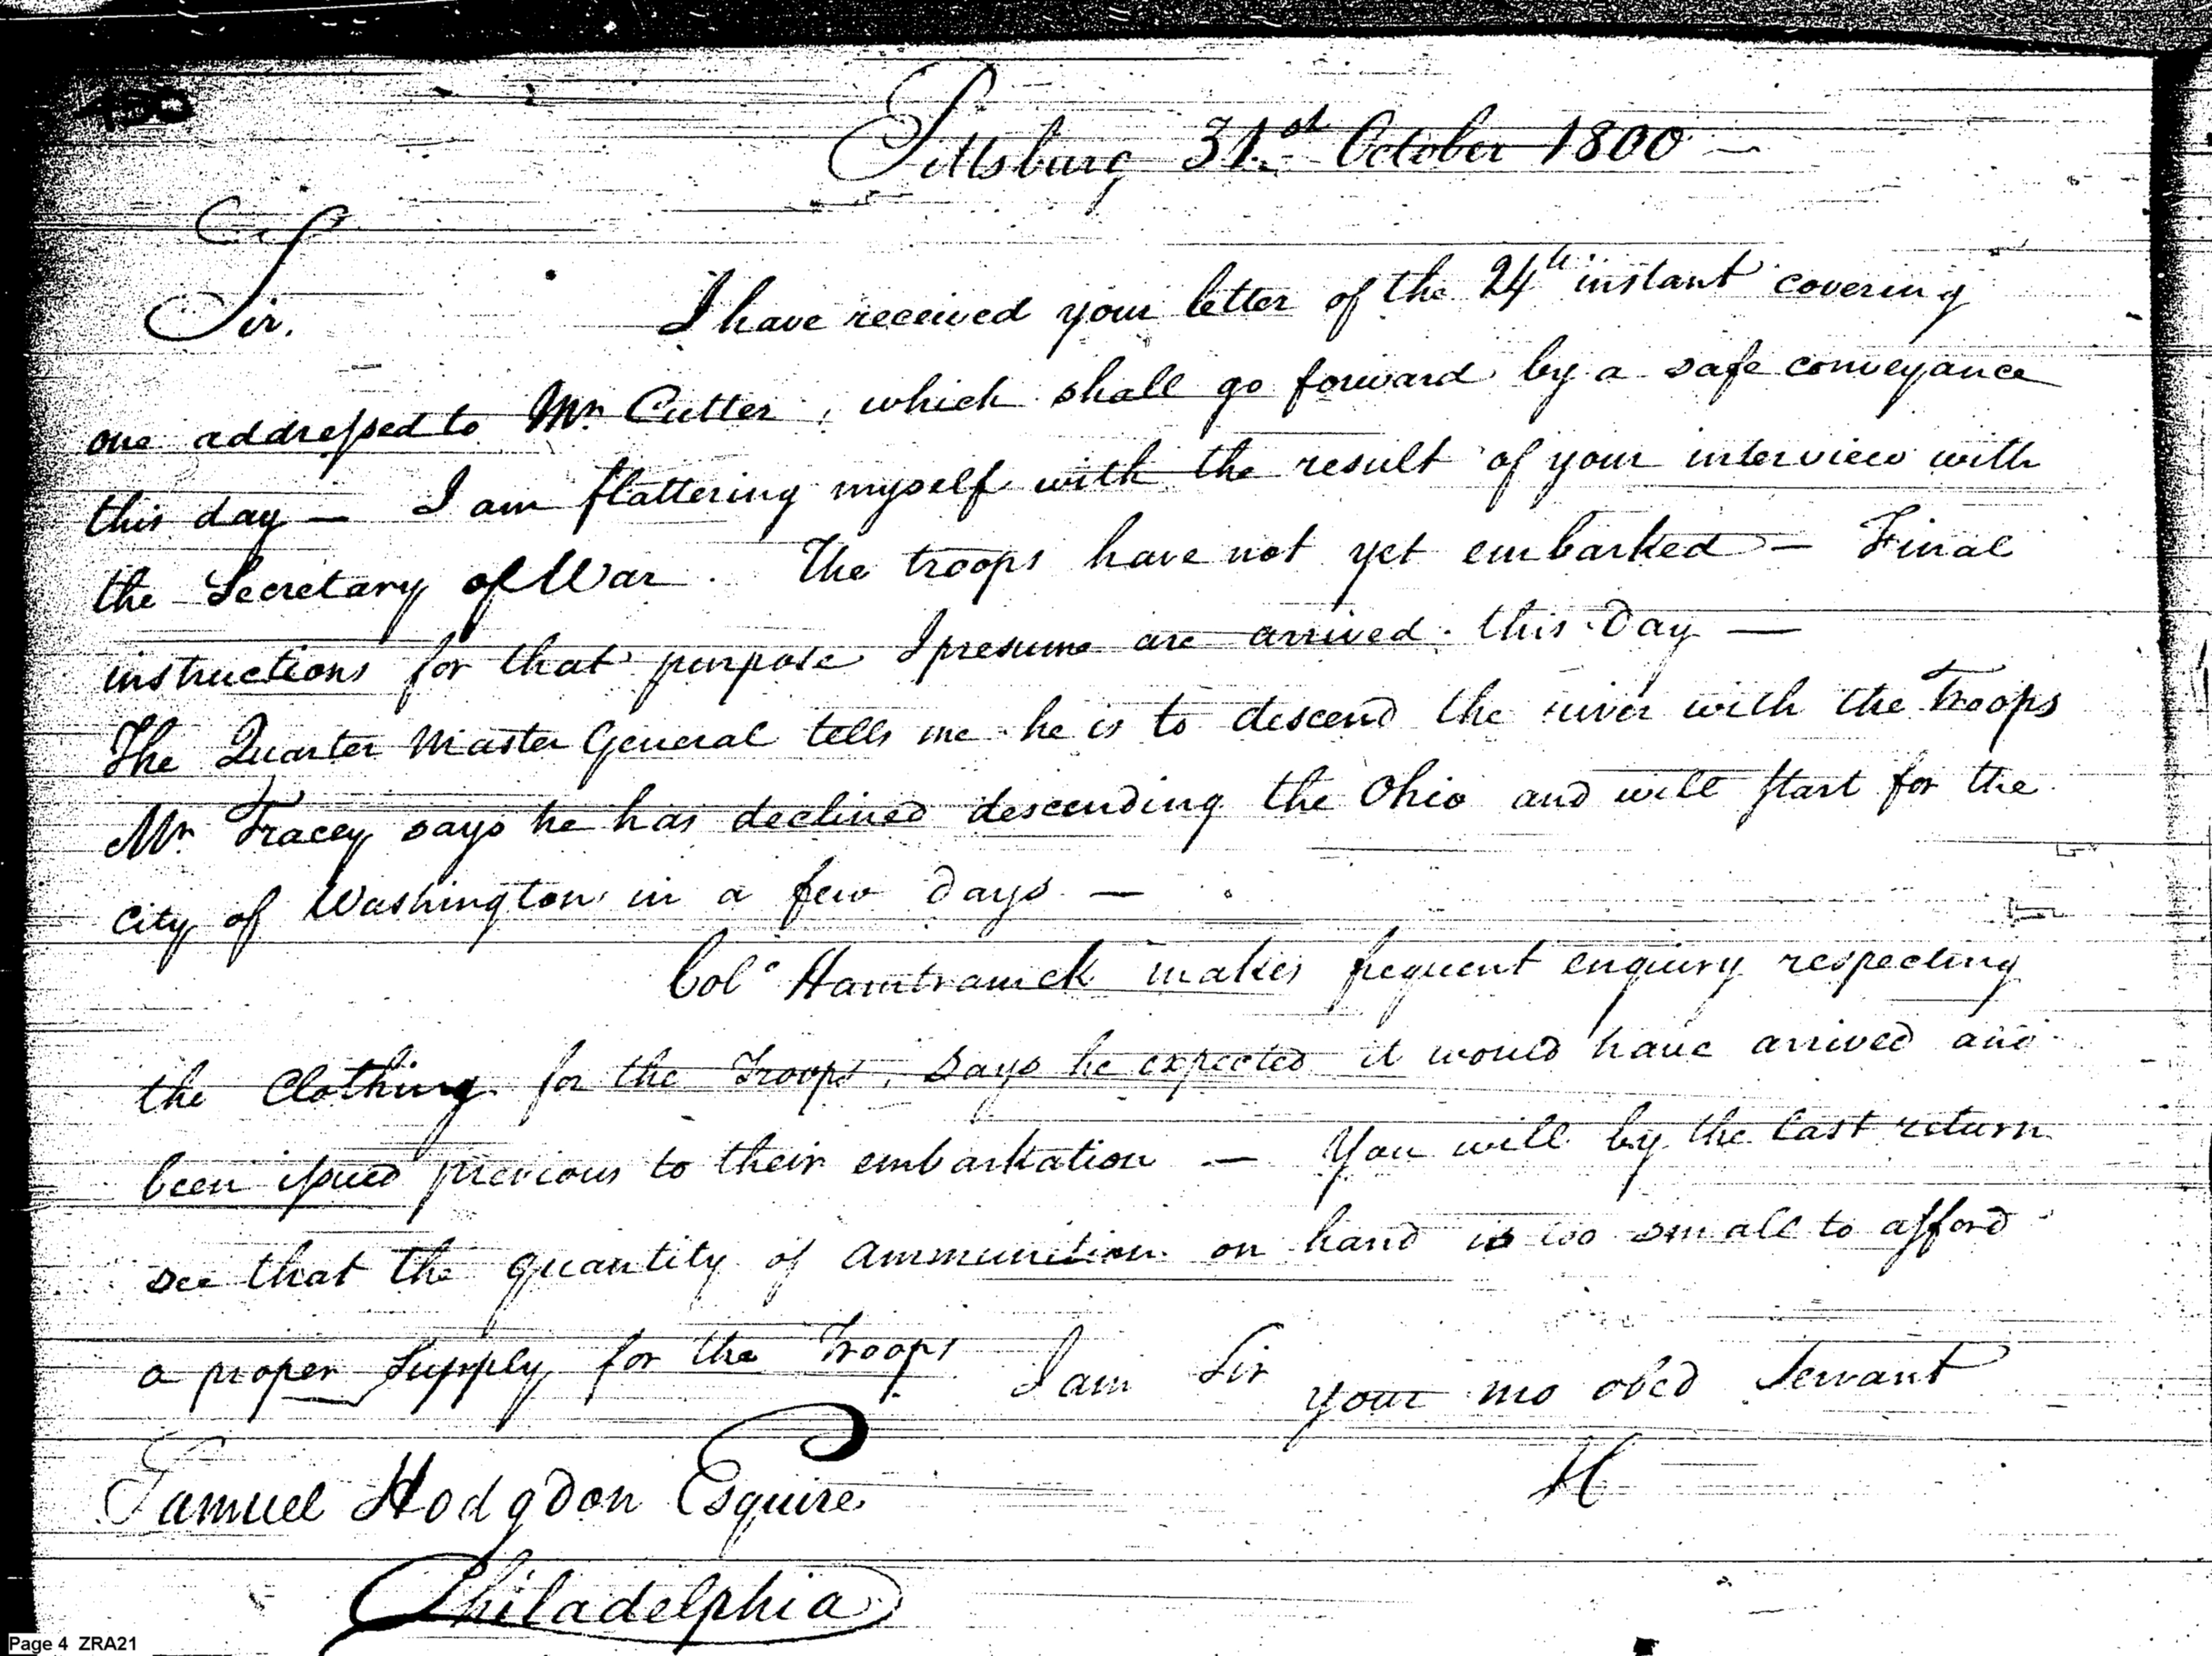 Pittsburg 31st October 1800 —
Sir.
I have received your letter of the 24th instant covering
one addressed to Mr. Cutter, which shall go forward by a safe conveyance
this day — I am flattering myself with the result of your interview with
the Secretary of War. The troops have not yet embarked — Final
instructions for that purpose I presume are arrived this Day —
The Quarter Master General tells me he is to descend the river with the Troops
Mr. Tracey says he has declined descending the Ohio and will start for the
City of Washington in a few days —
Colo Hamtramck makes frequent enquiry respecting
the Clothing for the Troops, says he expected it would have arrived and
been issued previous to their embarkation — You will by the last return
see that the quantity of ammunition on hand is too small to afford
a proper supply for the Troops I am Sir your mo obed Servant
H
Samuel Hodgdon Esquire
Philadelphia
Page 4 ZRA21